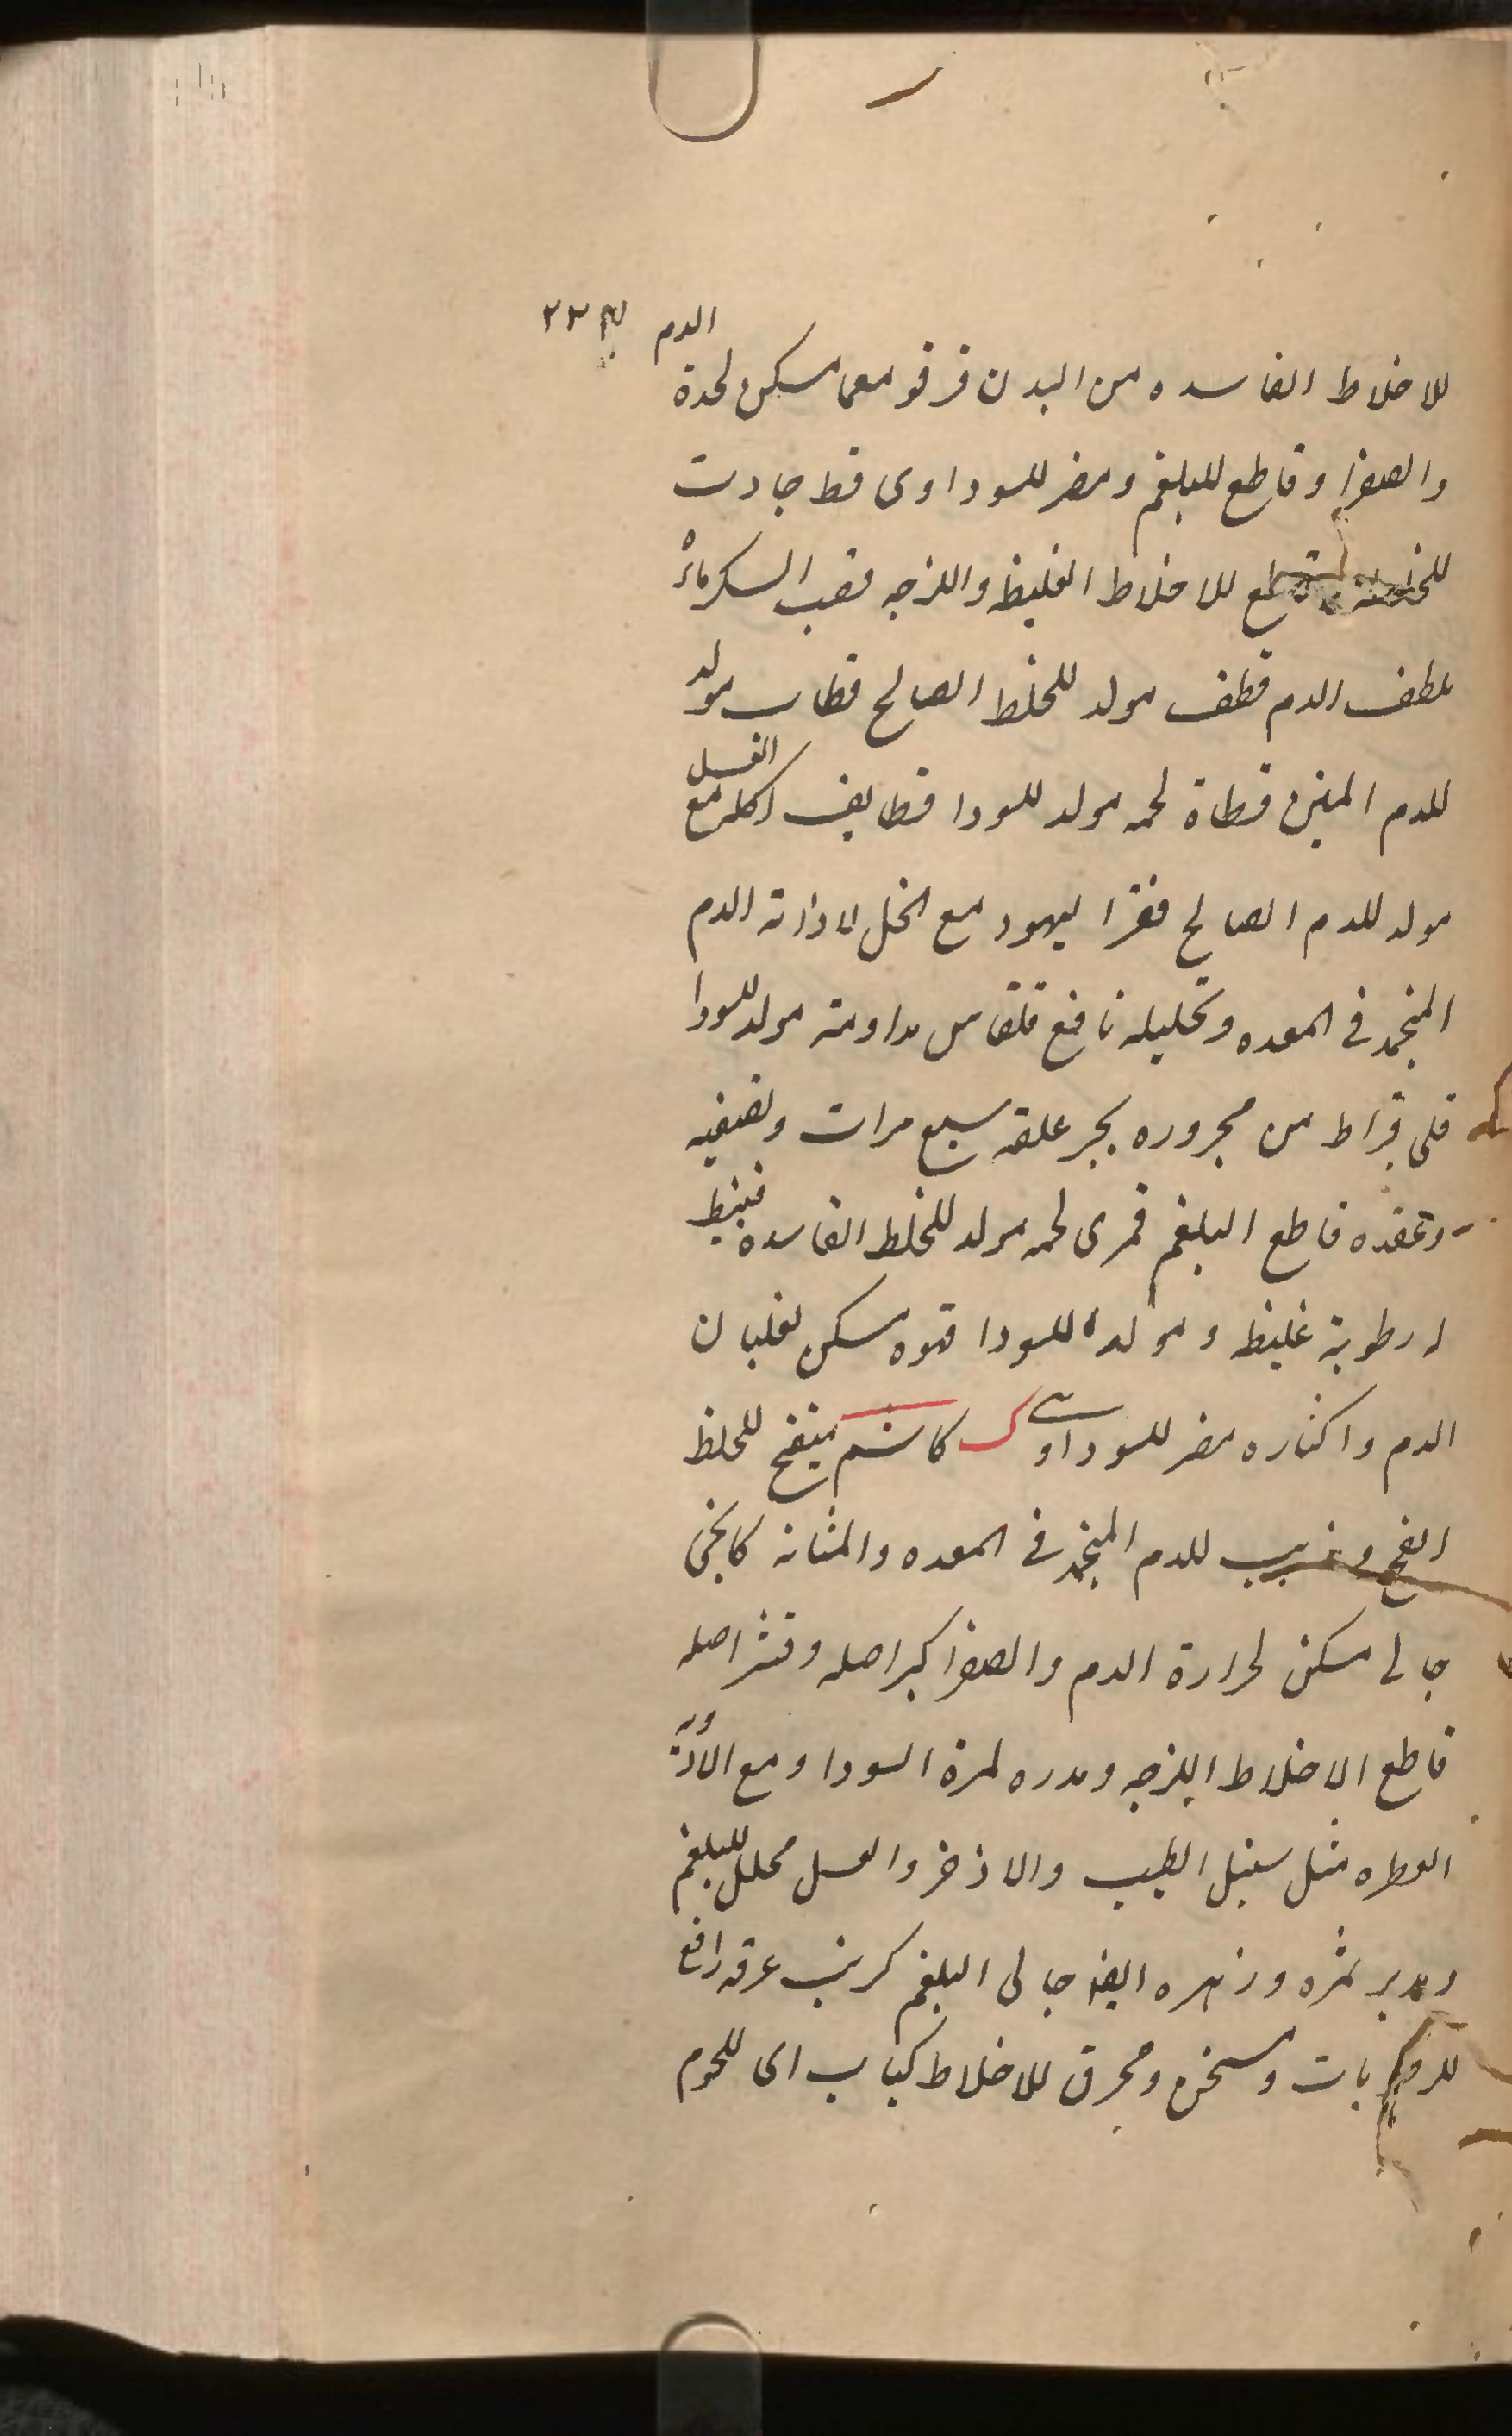 ٢٢٣
للاخلاط الفاسده من البدن قرقومعما مسكن لحدة الدم
والصفرا وقاطع للبلغم ومضر للسوداوى قط جادت
قاطع للاخلاط الغليظ واللزجه قصب السكر ماؤه
ملطف الدم قطف مولد للخلط الصالح قطاب مولد
للدم المتين قطاة لحمه مولد للسودا قطايف اكله مع العسل
مولد للدم الصالح فقرا ليهود مع الخل لاذابة الدم
المنجمد فى المعده وتحليله نافع قلقاس مداومته مولد للسودا
قلى قيراط من مجروره بجر علقه سبع مرات وتصفيه
وعقده قاطع البلغم قمرى لحمه مولد للخلط الفاسده قنبيط
رطوبة غليظ ومولده للسودا قهوه مسكن لغليان
الدم واكثاره مضر للسوداوى ك كاشم منضج للخلط
الفج ومذيب للدم المنجمد فى المعده والمثانه كاكنج
جالى مسكن لحرارة الدم والصفرا كبر اصله وقشر اصله
قاطع الاخلاط اللزجه ومدره لمرة السودا ومع الادويه
العطره مثل سنبل الطيب والاذخر والعسل محلل للبلغم
ومدبر ثمره وزهره ايضا جالى البلغم كرنب عرقه رافع
للرطوبات ومسخن ومحرق للاخلاط كباب اى للحوم